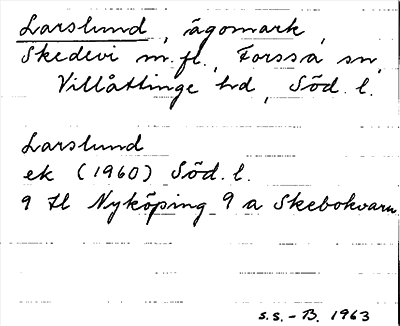 Larslund, ägomark,
Skedevi m.fl., Forssa sn,
Villåttinge hd, Söd. l.
Larslund
ek (1960) Söd. l.
9 H Nyköping 9 a Skebokvarn
S.S. - B. 1963